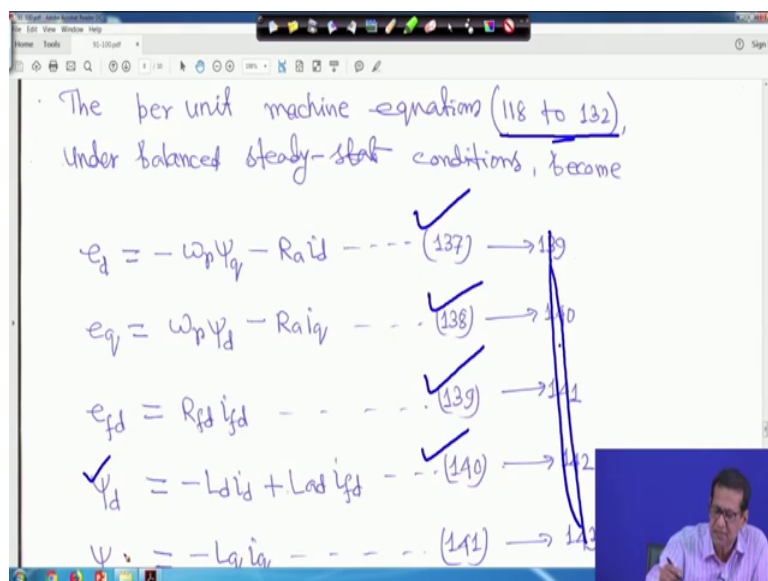 91-100.pdf - Adobe Acrobat Reader DC
File Edit View Window Help
Home Tools 91-100.pdf × Sign
The per unit machine equations (118 to 132),
under balanced steady-stat conditions, become
e_d = -ω_r ψ_q - R_a i_d ---- (137) → 139
e_q = ω_r ψ_d - R_a i_q --- (138) → 140
e_fd = R_fd i_fd ------ (139) → 141
ψ_d = -L_d i_d + L_ad i_fd --- (140) → 142
ψ = -L_q i_q ------ (141) → 143